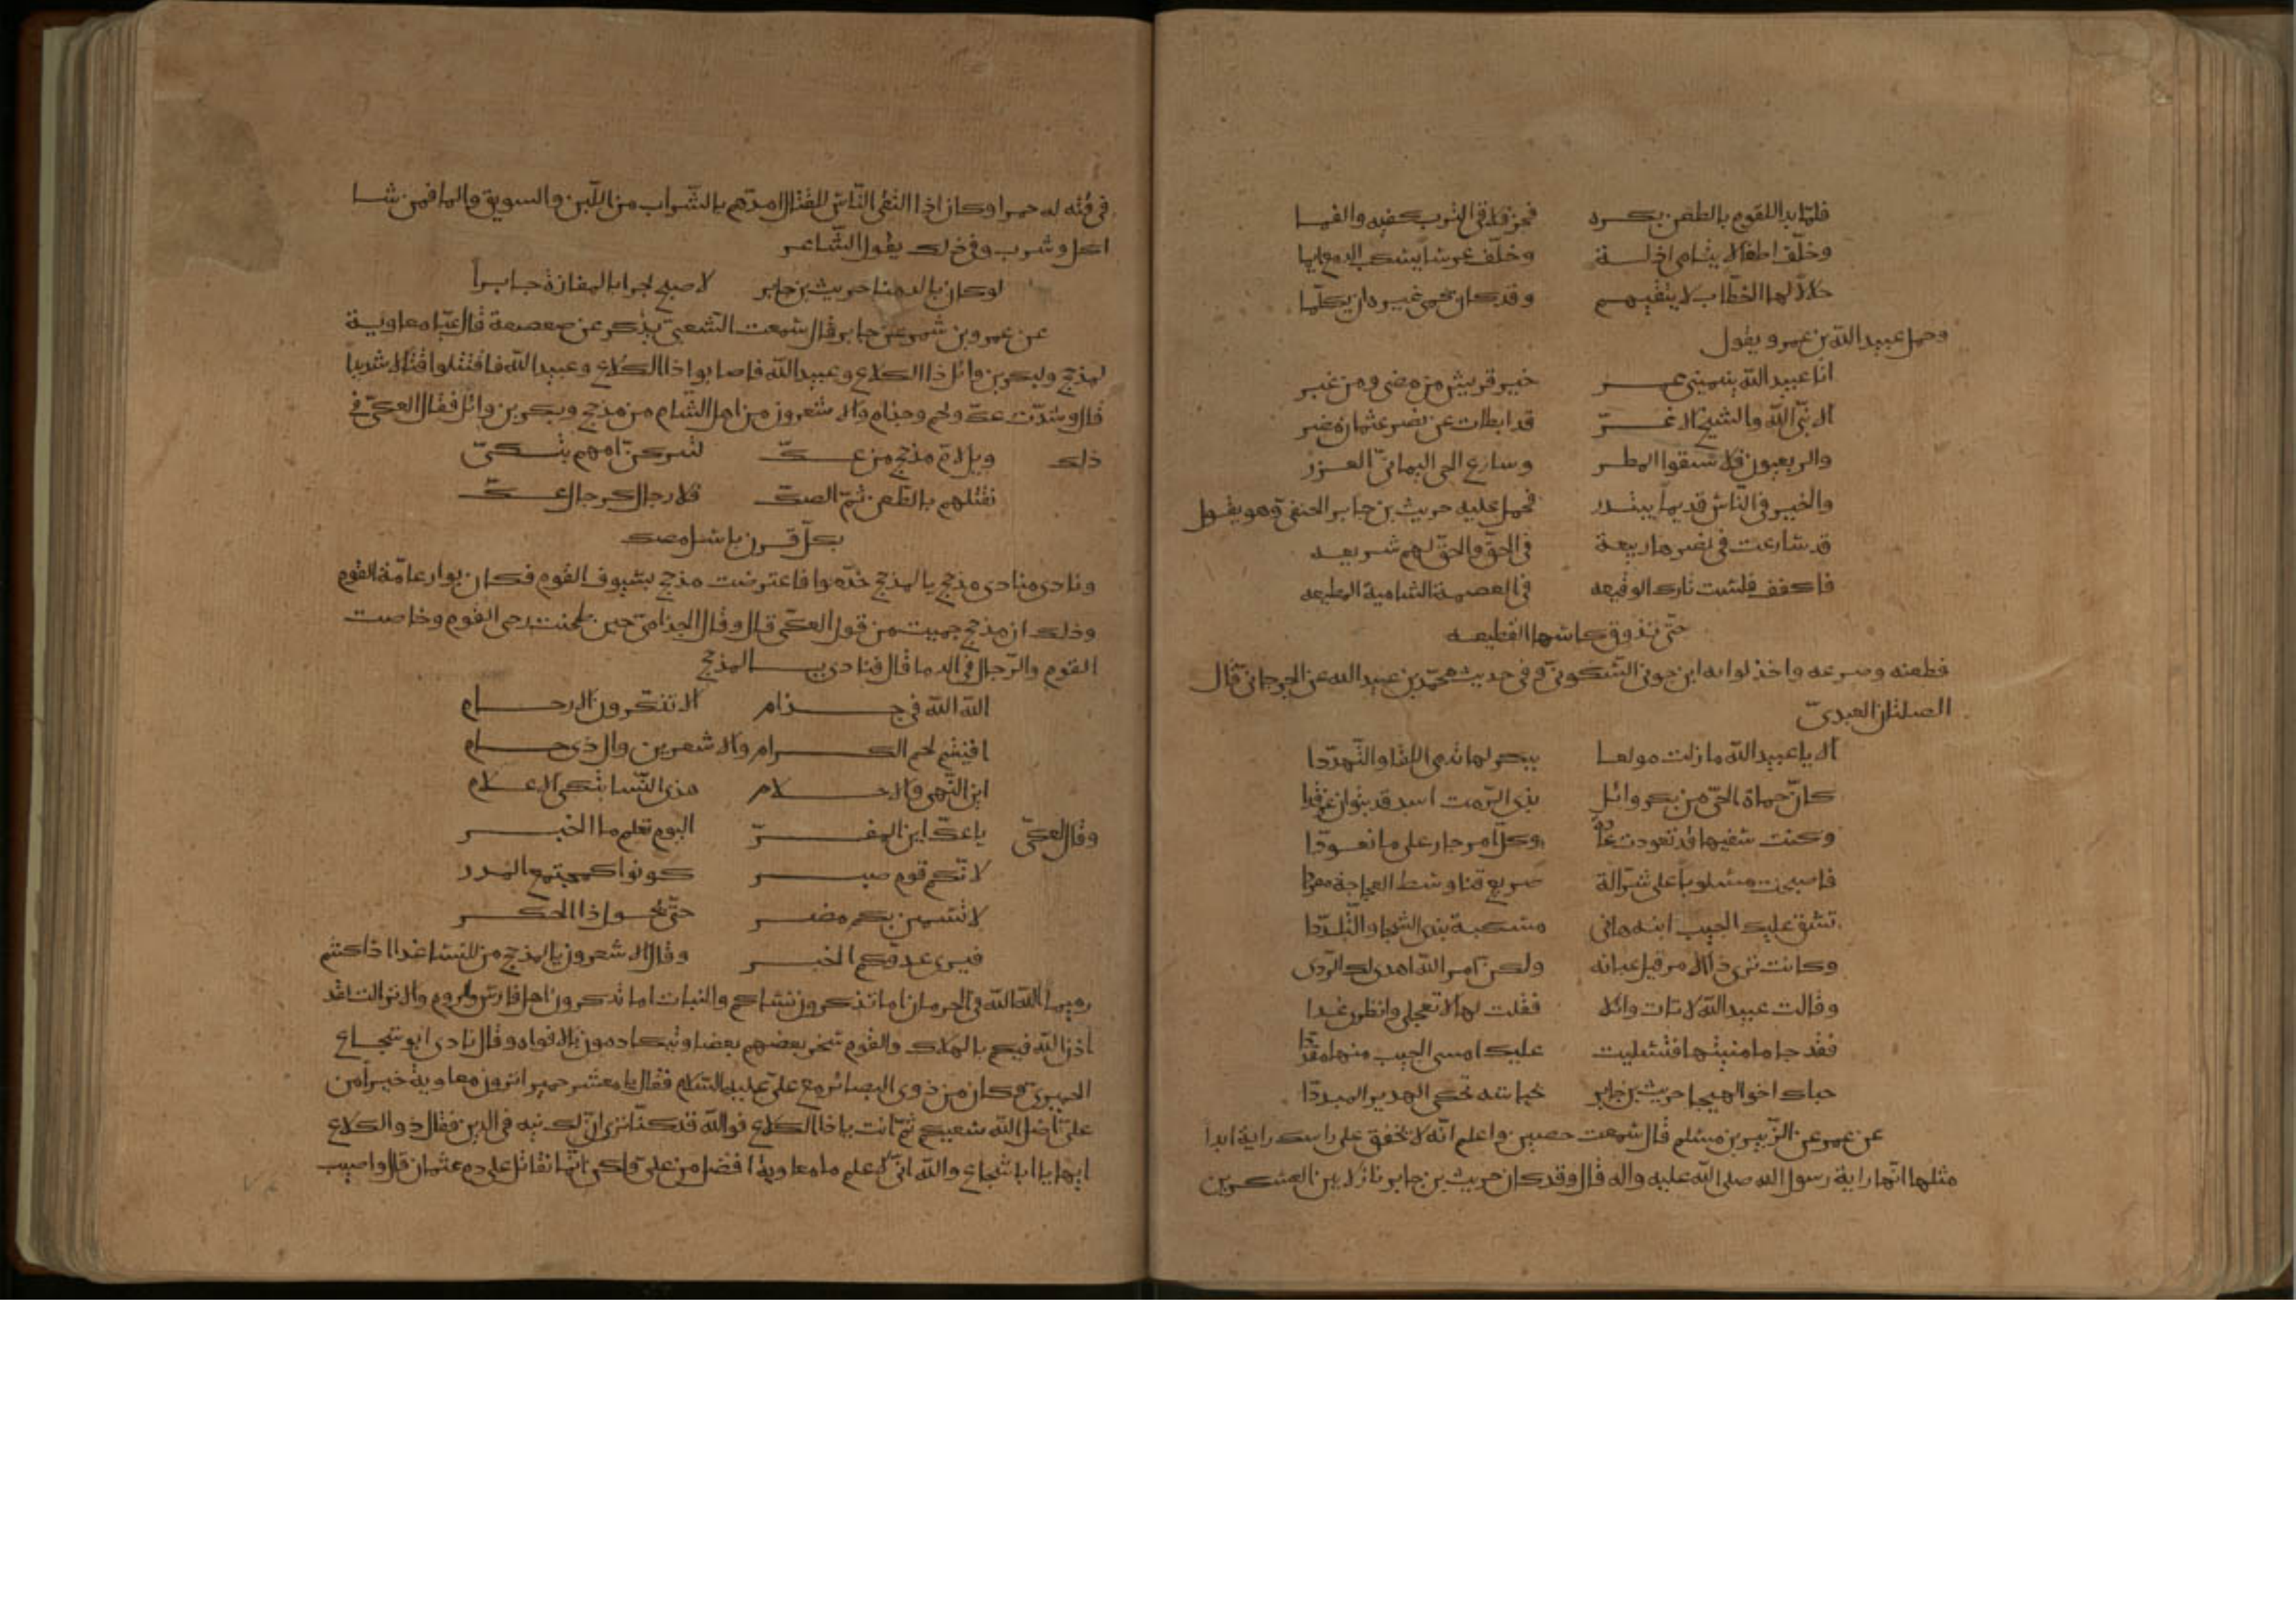 فلمّا بدا للقوم بالطعن بكره فخر فلاقى الترب كفيه والفما
وخلّف اطفالا يتامى اذلـة وخلّف عرسا يسكب الدمع ايما
حلالا لها الخطّاب لا يتقيهـم وقد كان يحمى غيره ان يكلّما
وحمل عبيد الله بن عمر و يقول
انا عبيد الله ينمينى عمـر خير قريش من مضى ومن غبر
الا نبىّ الله والشيخ الاغـرّ قد ابطات عن نصر عثمان مضر
والربعيون فلا سقوا المطـر وسارع الحى اليمانىّ الغـرر
والخير فى النّاس قديما يبتـدر فحمل عليه حريث بن جابر الحنفى وهو يقـول
قد سارعت فى نصرها ربيعة فى الحقّ والحقّ لهم شـريعـه
فاكفف فلست تارك الوقيعه فى العصبة السامية المطيعه
حتّى تذوق كاسها الفظيعـه
فطعنه وصرعه واخذ لوائه ابن جون السّكونىّ وفى حديث محمّد بن عبيد الله عن الجرجانى قال
الصلتان العبدىّ
الا يا عبيد الله ما زلت مولعـا ببكر لها تهدى اللقا والتّهدّدا
كانّ حماة الحىّ من بكر وائلٍ بذى الرّمث اسد قد تبوّان غرقدا
وكنت سفيها قد تعودت عادة وكلّ امرء جار على ما تعـودّا
فاصبحت مسلوبا على شرّ الة صريع قنا وسط العجاجة مفردا
تشقّ عليك الجيب ابنـه هانى مسلبة تبدى الشجا والتّلدّدا
وكانت ترى ذا الامر قبل عيانه ولكن امر الله اهدى لك الرّدى
وقالت عبيد الله لا تات وائلا فقلت لها لا تعجلى وانظرى غدا
فقد جا ما منيتها فتسلبت عليك امسى الجيب منها مقدّدا
حباك اخو الهيجا حريث بن جابر بجياشه تحكى الهدير المبددّا
عن عمر عن الزّبير بن مسلم قال سمعت حصين واعلم انّه لا تخفق على راسك راية ابدا
مثلها انّها راية رسول الله صلى الله عليه واله قال وقد كان حريث بن جابر نازلا بين العسكرين
فى قبّه له حمرا وكان اذا التقى النّاس للقتال امدّهم بالشّراب من اللّبن والسويق والما فمن شـا
اكل وشرب وفى ذلك يقول الشّاعر
لو كان بالدهنا حريث بن جابر لاصبح بحرا بالمفازة جابـرا
عن عمرو بن شمر عن جابر قال سمعت الشعبىّ يذكر عن صعصعة قال عبّا معاويـة
لمذحج ولبكر بن وائل ذا الكلاع وعبيد الله فاصابوا ذا الكلاع وعبيد الله فاقتتلوا قتالا شديدا
قال وشدّت عكّ ولخم وجذام والاشعرون من اهل الشّام من مذحج وبكر بن وائل فقال العكىّ فى
ذلك ويل لامّ مذحج من عـكّ لنتركنّ امهم تبـكىّ
نقتلهم بالطّعن ثمّ الصكّ فلا رجال كرجال عـكّ
بكلّ قـرن باسل مصك
ونادى منادى مذحج يا لمذحج خدّموا فاعترضت مذحج لسيوف القوم فكان بوار عامّة القوم
وذلك ان مذحج حميت من قول العكّى قال وقال الجذامىّ حين طحنت رحى القوم وخاضت
القوم والرّجال فى الدما قال فنادى يـا لمذحج
الله الله فى جـذام الا تذكرون الارحـام
افنيتم لخم الكـرام والاشعرين وال ذى حـام
اين النّهى والاحـلام هذى النّسا تبكى الاعـلام
وقال العكىّ يا عكّ اين المفـرّ اليوم تعلم ما الخبـر
لا نكم قوم صبـر كونوا كمجتمع المـدر
لا تشمتن بكم مضـر حتّى يحـول ذا الحكـر
فيرى عدوّكم الخبـر وقال الاشعرون يا لمذحج من للنسا غدا اذا كنتم
رميما الله الله فى الحرمان اما تذكرون نساءكم والبنات اما تذكرون اهل فارس والروم والاتراك لقد
اذن الله فيكم بالهلاك والقوم ينحر بعضهم بعضا ويتكادمون بالافواه وقال نادى ابو شجـاع
الحميرىّ وكان من ذوى البصائر مع علىّ عليه السّلام فقال يا معشر حمير اترون معاوية خيرا من
علىّ اضل الله سعيكم ثمّ انت يا ذا الكلاع فوالله قد كنّا نرى انّ لك نيه فى الدين فقال ذو الكلاع
ايها يا ابا شجاع والله انّى لاعلم ما معاوية افضل من على ولكن انّما نقاتل على دم عثمان قال واصيب